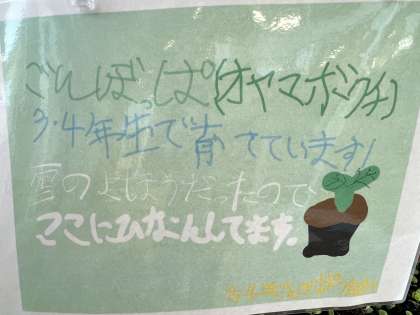 ごんぼっぱ(オヤマボクチ)
3・4年生で育さています!
雪のよほうだったので、
ここにひなんしてます。
3・4年生